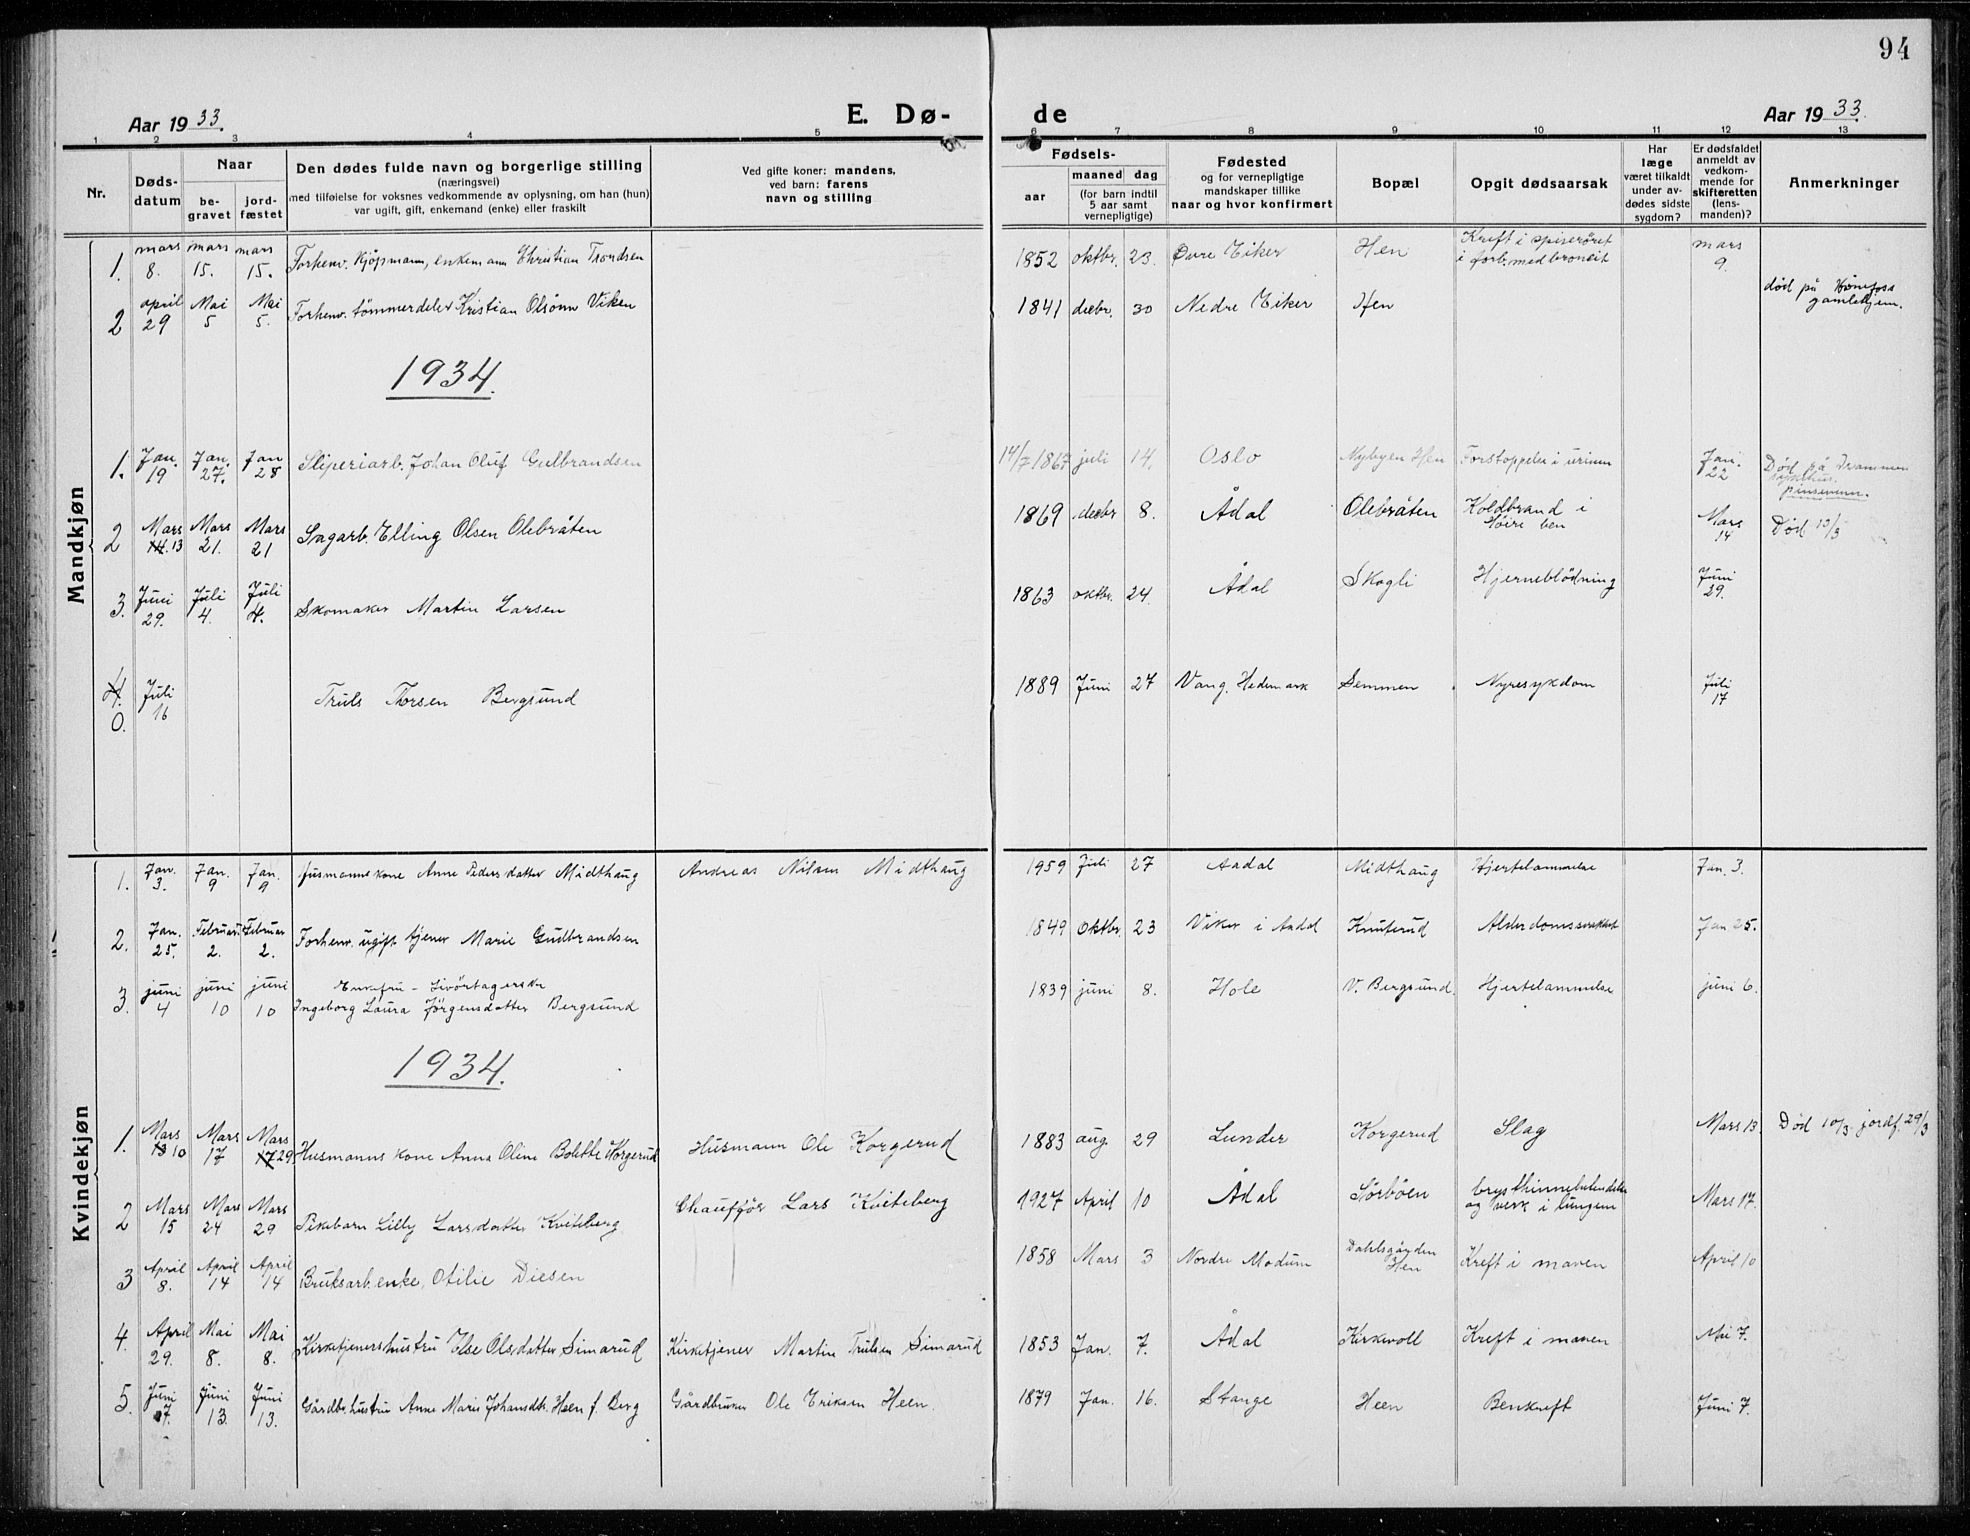 94
Aar 1933.
E. Dø-
de
Aar 1933.
1 2 3 4 5 6 7 8 9 10 11 12 13
Nr.
Døds-
datum
Naar
be-
gravet
jord-
fæstet
Den dødes fulde navn og borgerlige stilling
(næringsvei)
med tilføielse for voksnes vedkommende av oplysning, om han (hun)
var ugift, gift, enkemand (enke) eller fraskilt
Ved gifte koner: mandens,
ved barn: farens
navn og stilling
Fødsels-
aar
maaned dag
(for barn indtil
5 aar samt
vernepligtige)
Fødested
og for vernepligtige
mandskaper tillike
naar og hvor konfirmert
Bopæl
Opgit dødsaarsak
Har
læge
været tilkaldt
under av-
dødes sidste
sygdom?
Er dødsfaldet
anmeldt av
vedkom-
mende for
skifteretten
(lens-
manden)?
Anmerkninger
Mandkjøn
1. mars 8. mars 15. mars 15. Forhenv. kjøpmann, enkemann Christian Trondsen 1852 oktbr. 23. Øvre Eiker Hen Kreft i spiserøret
i forb. med broncit mars 9.
2 april 29 Mai 5 Mai 5. Forhenv. tømmerdeler Kristian Olsønn Viken 1841 decbr. 30 Nedre Eiker Hen død på Hønefoss
gamlehjem.
1934.
1. Jan. 19 Jan. 27. Jan 28 Sliperiarb. Johan Oluf Gulbrandsen 14/7 1867 juli 14. Oslo Nybyen Hen Forstoppelse i urinen Jan. 22 Død på Drammen
sykehus.
pinsevenn.
2 Mars 14. 13 Mars 21. Mars 21 Sagarb. Elling Olsen Olebråten 1869 decbr 8. Ådal Olebråten Koldbrand i
høire ben Mars 14 Død 13/3
3. Juni 29. Juli 4. Juli 4. Skomaker Martin Larsen 1863 oktbr. 24. Ådal Skogli Hjerneblödning Juni 29.
4. 0. Juli 16 Truls Thorsen Bergsund 1889 Juni 27 Vang, Hedmark Semmen Nyresykdom Juli 17
Kvindekjøn
1. Jan. 3. Jan. 9 Jan. 9 Husmannskone Anne Pedersdatter Midthaug Andreas Nilsen Midthaug 1959 Juli 27 Aadal Midthaug Hjertelammelse Jan. 3.
2. Jan. 25. Februar. 2. Februar 2. Forhenv. ugift tjener Marie Gudbrandsen 1849 Oktbr. 23 Viker i Aadal Knuterud Alderdomssvakhet Jan 25.
3. juni 4 juni 10 juni 10 Enkefru - Livörtagerske
Ingeborg Laura Jörgensdatter Bergsund 1839 juni 8. Hole V. Bergsund. Hjertelammelse juni 6.
1934.
1. Mars 13 10 Mars 17 Mars 17 29 Husmanns kone Anna Oline Bolette Korgerud Husmann Ole Korgerud 1883 aug. 29 Lunder Korgerud Slag Mars 13 Død 10/3. jordf. 29/3
2 Mars 15 Mars 24 Mars 29 Pikebarn Lilly Larsdatter Kviteberg Chauffør Lars Kviteberg 1927 April 10 Ådal Sörböen brysthinnebetendelse
og verk i lungene Mars 17.
3 April 8. April 14 April 14 Bruksarb.enke, Otilie Diesen 1858 Mars 3 Nordre Modum Dahlsgården
Hen Kreft i maven April 10
4. April 29. Mai 8. Mai 8. Kirketjenershustru Else Olsdatter Simarud Kirketjener Martin Trulsen Simarud 1853 Jan. 7. Ådal Kirkevoll Kreft i maven Mai 7.
5. Juni 7. Juni 13. Juni 13. Gårdbr.hustru Anne Marie Johansdtr. Heen f. Berg Gårdbruker Ole Eriksen Heen. 1879 Jan. 16. Stange Heen Benkreft Juni 7.